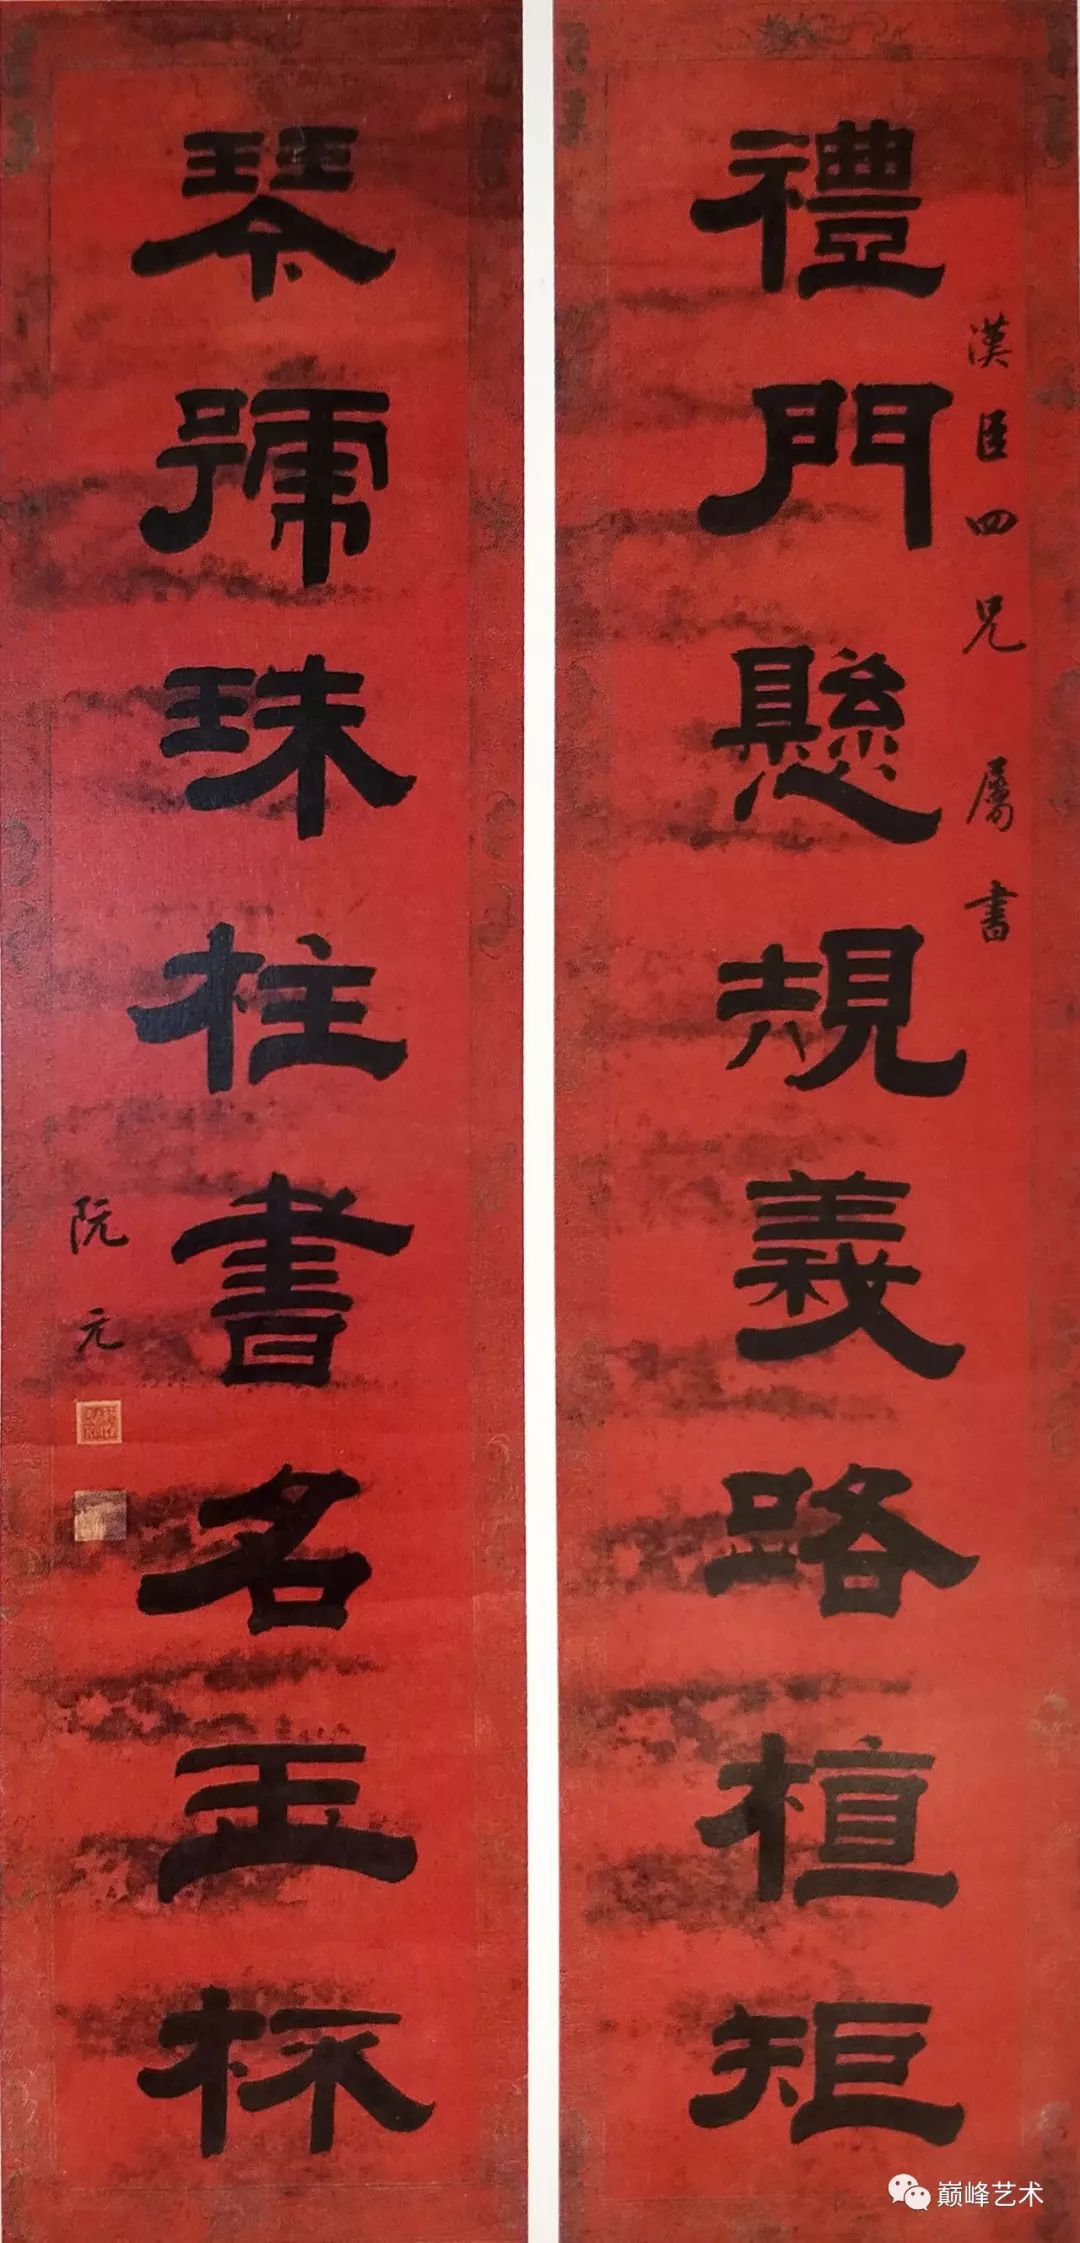 漢臣四兄 屬書
禮門懸規義路植矩
琴號珠柱書名玉杯
阮元
巅峰艺术